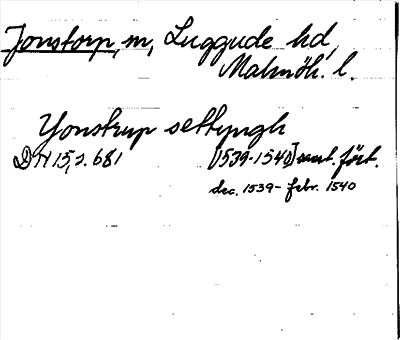 Jonstorp, m, Luggude hd,
Malmöh. l.
Yonstrup settyngh
DN 15, s. 681 [1539-1540] samt. fört.
dec. 1539 - febr. 1540